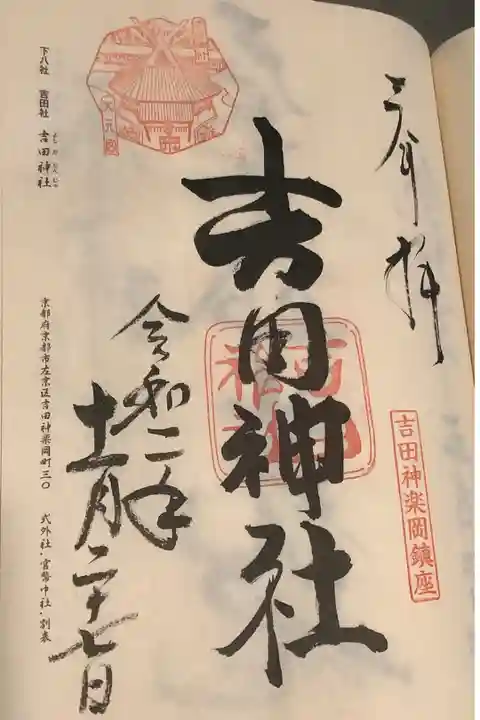 奉拝
吉田神楽岡鎮座
吉田神社
令和二年
十一月二十七日
下八社 吉田社 吉田神社
よしだじんじゃ
京都府京都市左京区吉田神楽岡町三〇 式外社・官幣中社・別表